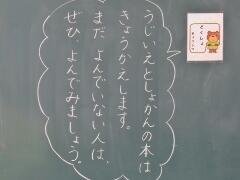 うじいえとしょかんの本は
きょうかえします。
まだ、よんでいない人は、
ぜひ、よんでみましょう。
どくしょ